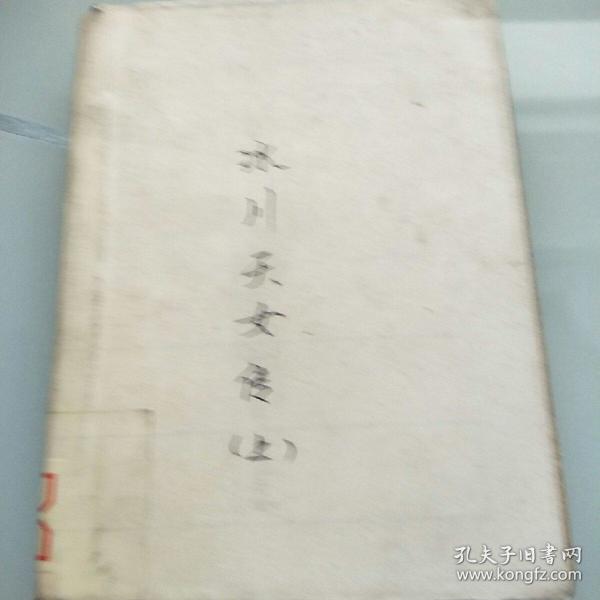 冰川天女传
(上)
孔夫子旧书网
www.kongfz.com